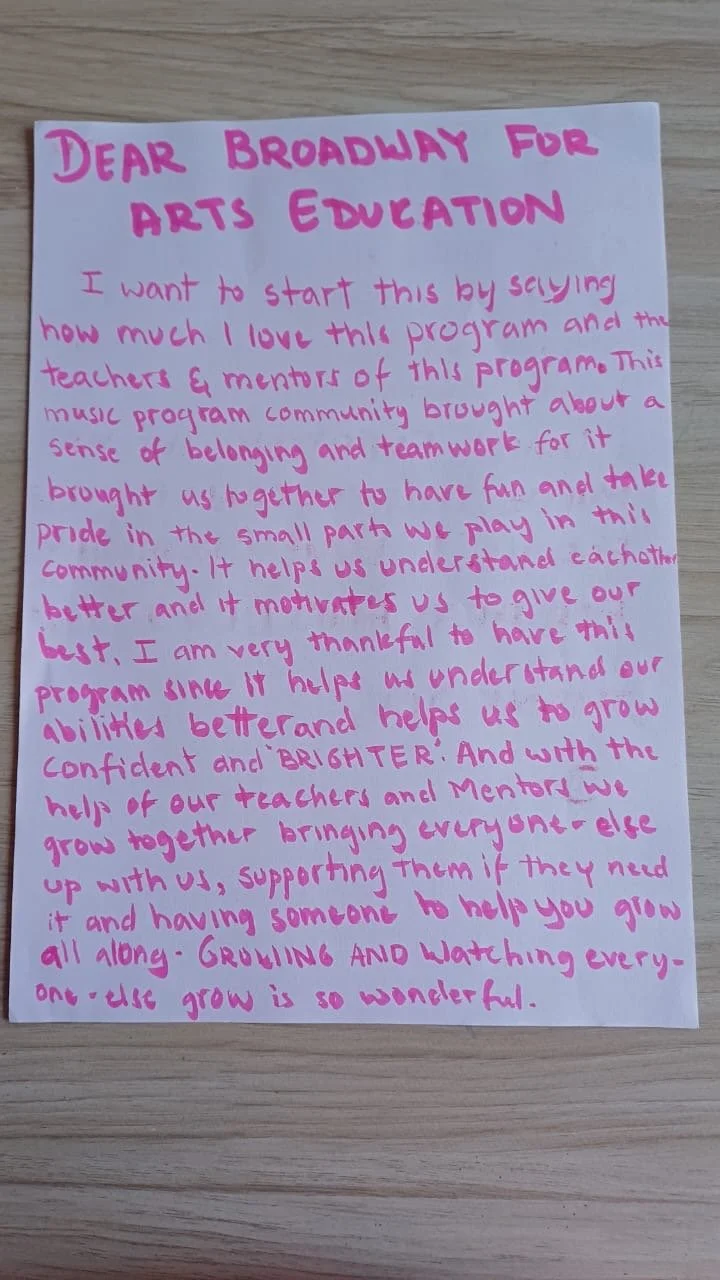 DEAR BROADWAY FOR
ARTS EDUCATION
I want to start this by saying
how much I love this program and the
teachers & mentors of this program. This
music program community brought about a
sense of belonging and teamwork for it
brought us together to have fun and take
pride in the small parts we play in this
community. It helps us understand eachother
better and it motivates us to give our
best. I am very thankful to have this
program since it helps us understand our
abilities better and helps us to grow
confident and 'BRIGHTER'. And with the
help of our teachers and Mentors we
grow together bringing everyone-else
up with us, supporting them if they need
it and having someone to help you grow
all along. GROWING AND Watching every-
one-else grow is so wonderful.